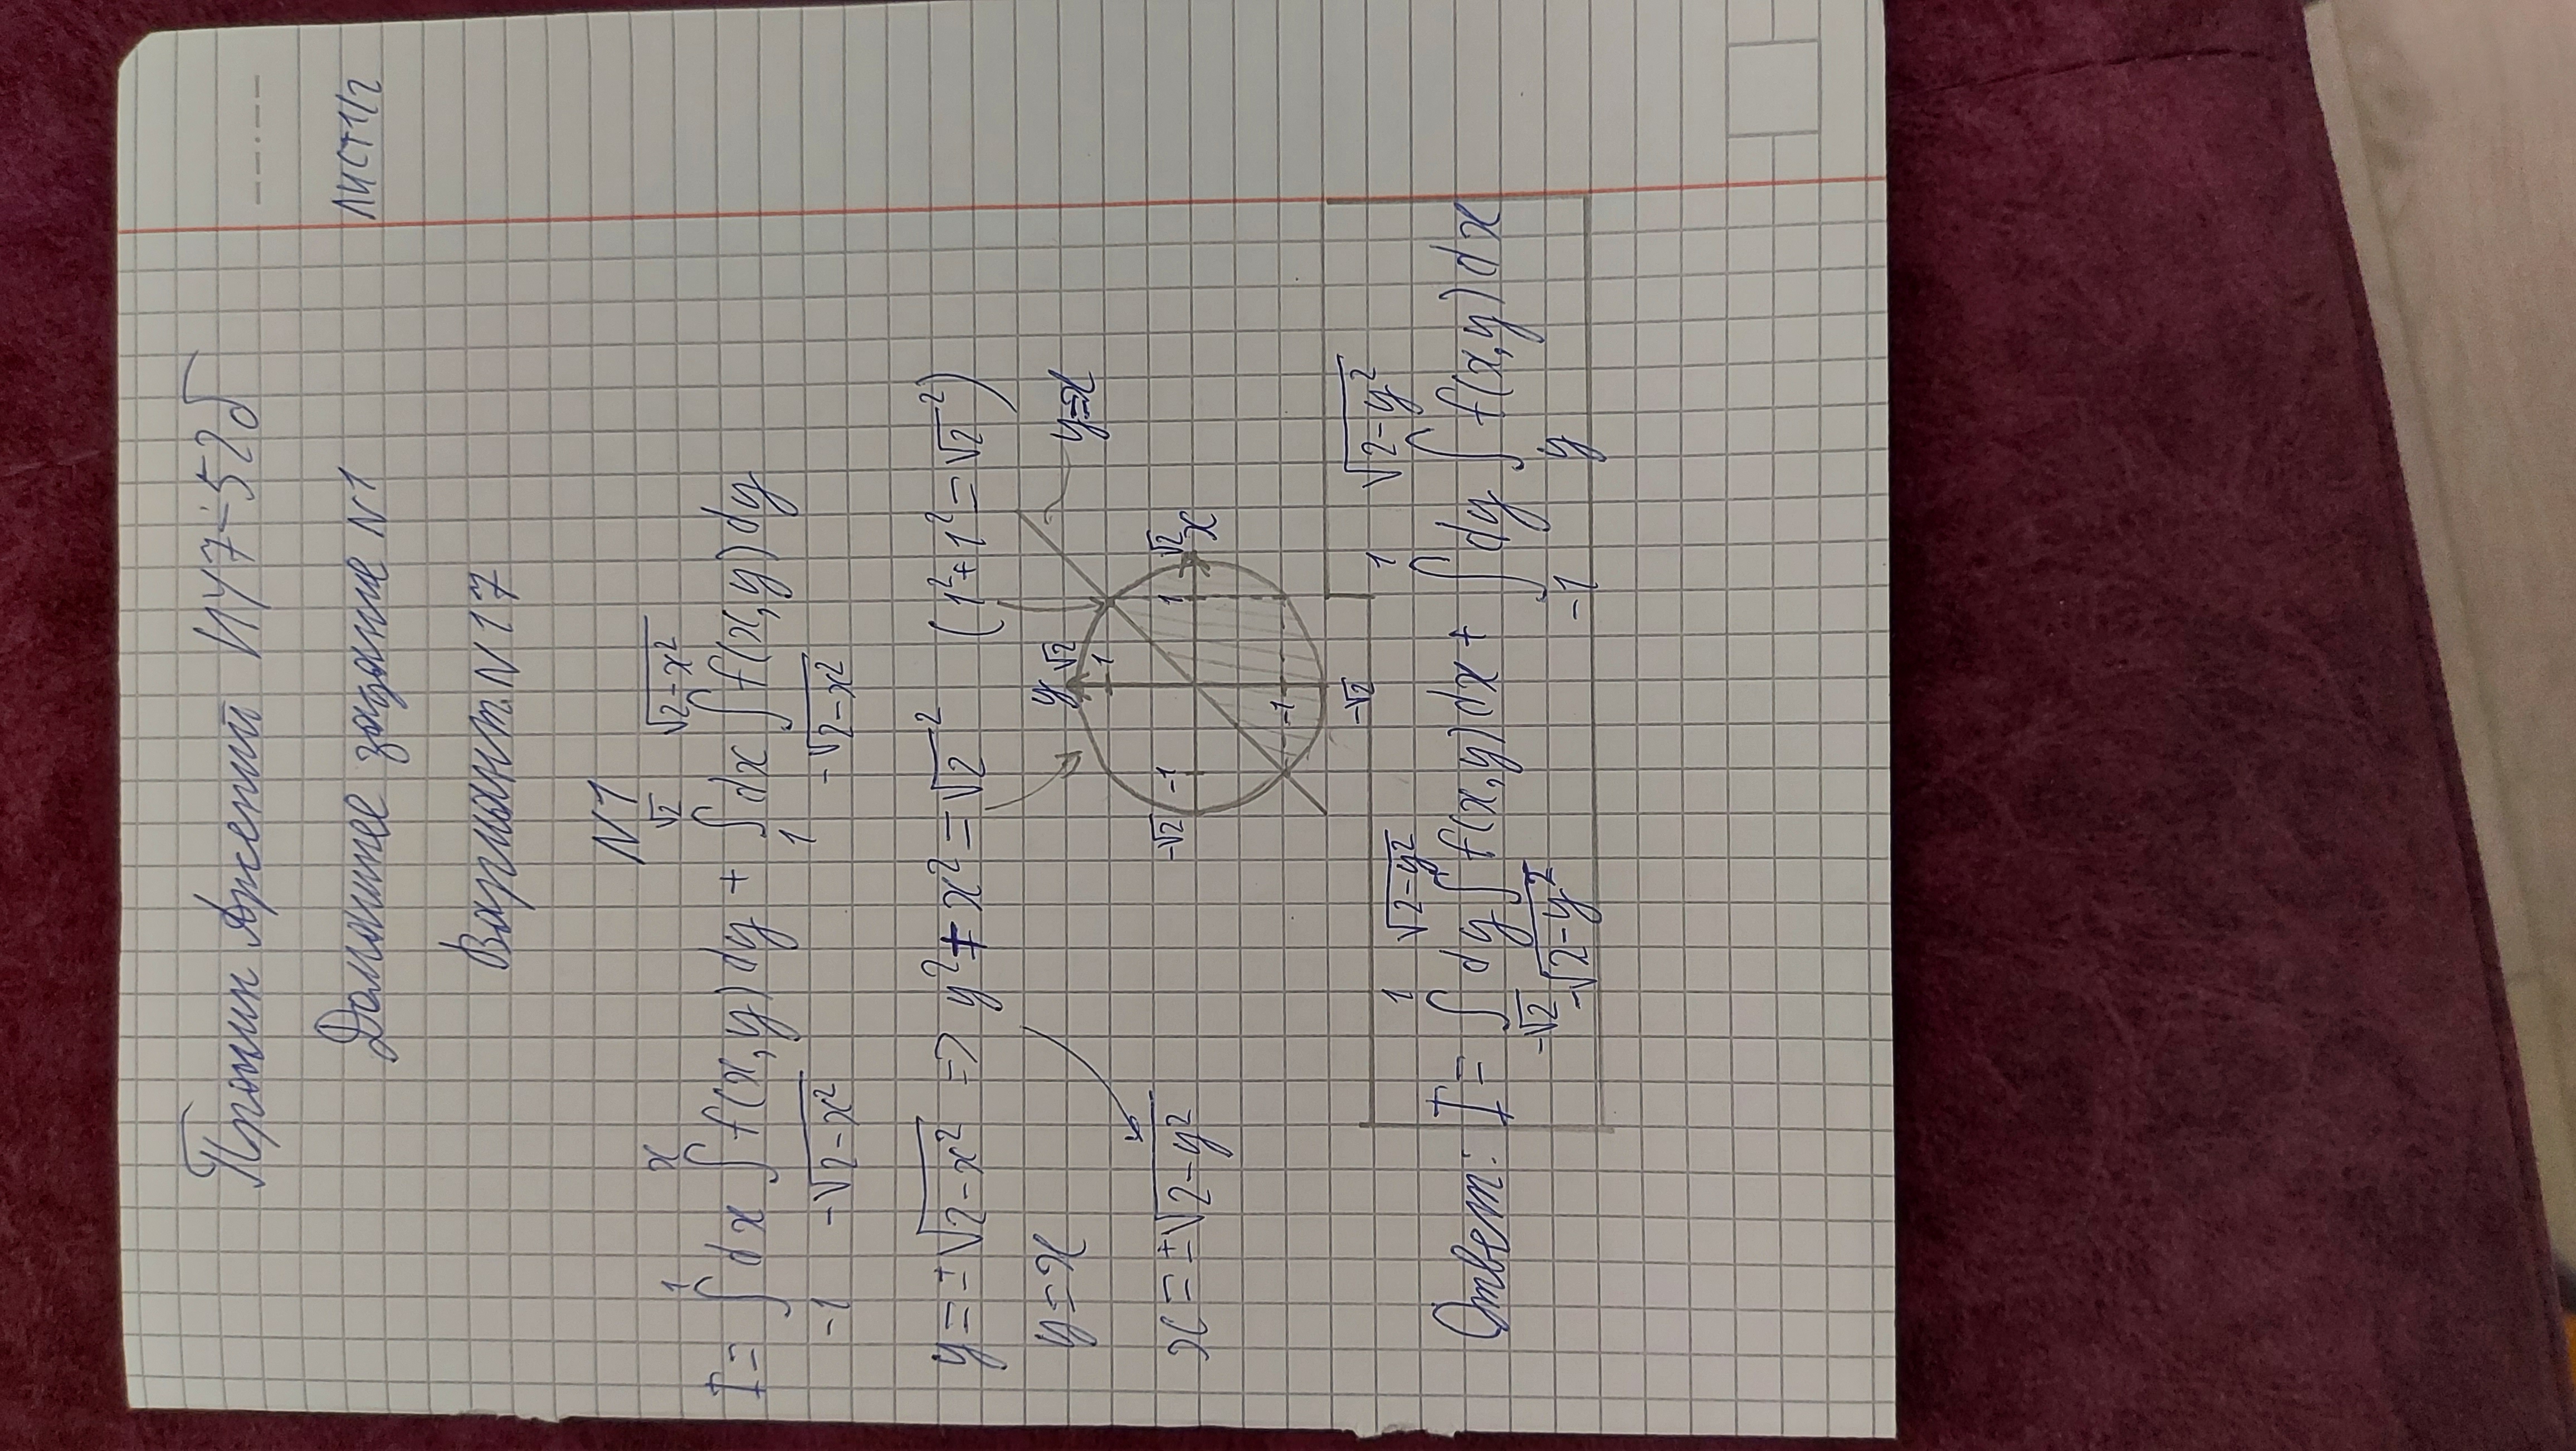 Пронин Арсений ИУ7-52б
Домашнее задание N1
ЛИСТ 1/2
Вариант N17
N1
I = ∫_{-1}^{1} dx ∫_{-√(2-x²)}^{x} f(x,y)dy + ∫_{1}^{√2} dx ∫_{-√(2-x²)}^{√(2-x²)} f(x,y)dy
y = ±√(2-x²) => y² + x² = √2² (1² + 1² = √2²)
y = x
x = ±√(2-y²)
y √2
1
y=x
-√2 -1 1 √2
x
-1
-√2
Ответ: I = ∫_{-√2}^{1} dy ∫_{-√(2-y²)}^{√(2-y²)} f(x,y)dx + ∫_{-1}^{1} dy ∫_{y}^{√(2-y²)} f(x,y)dx